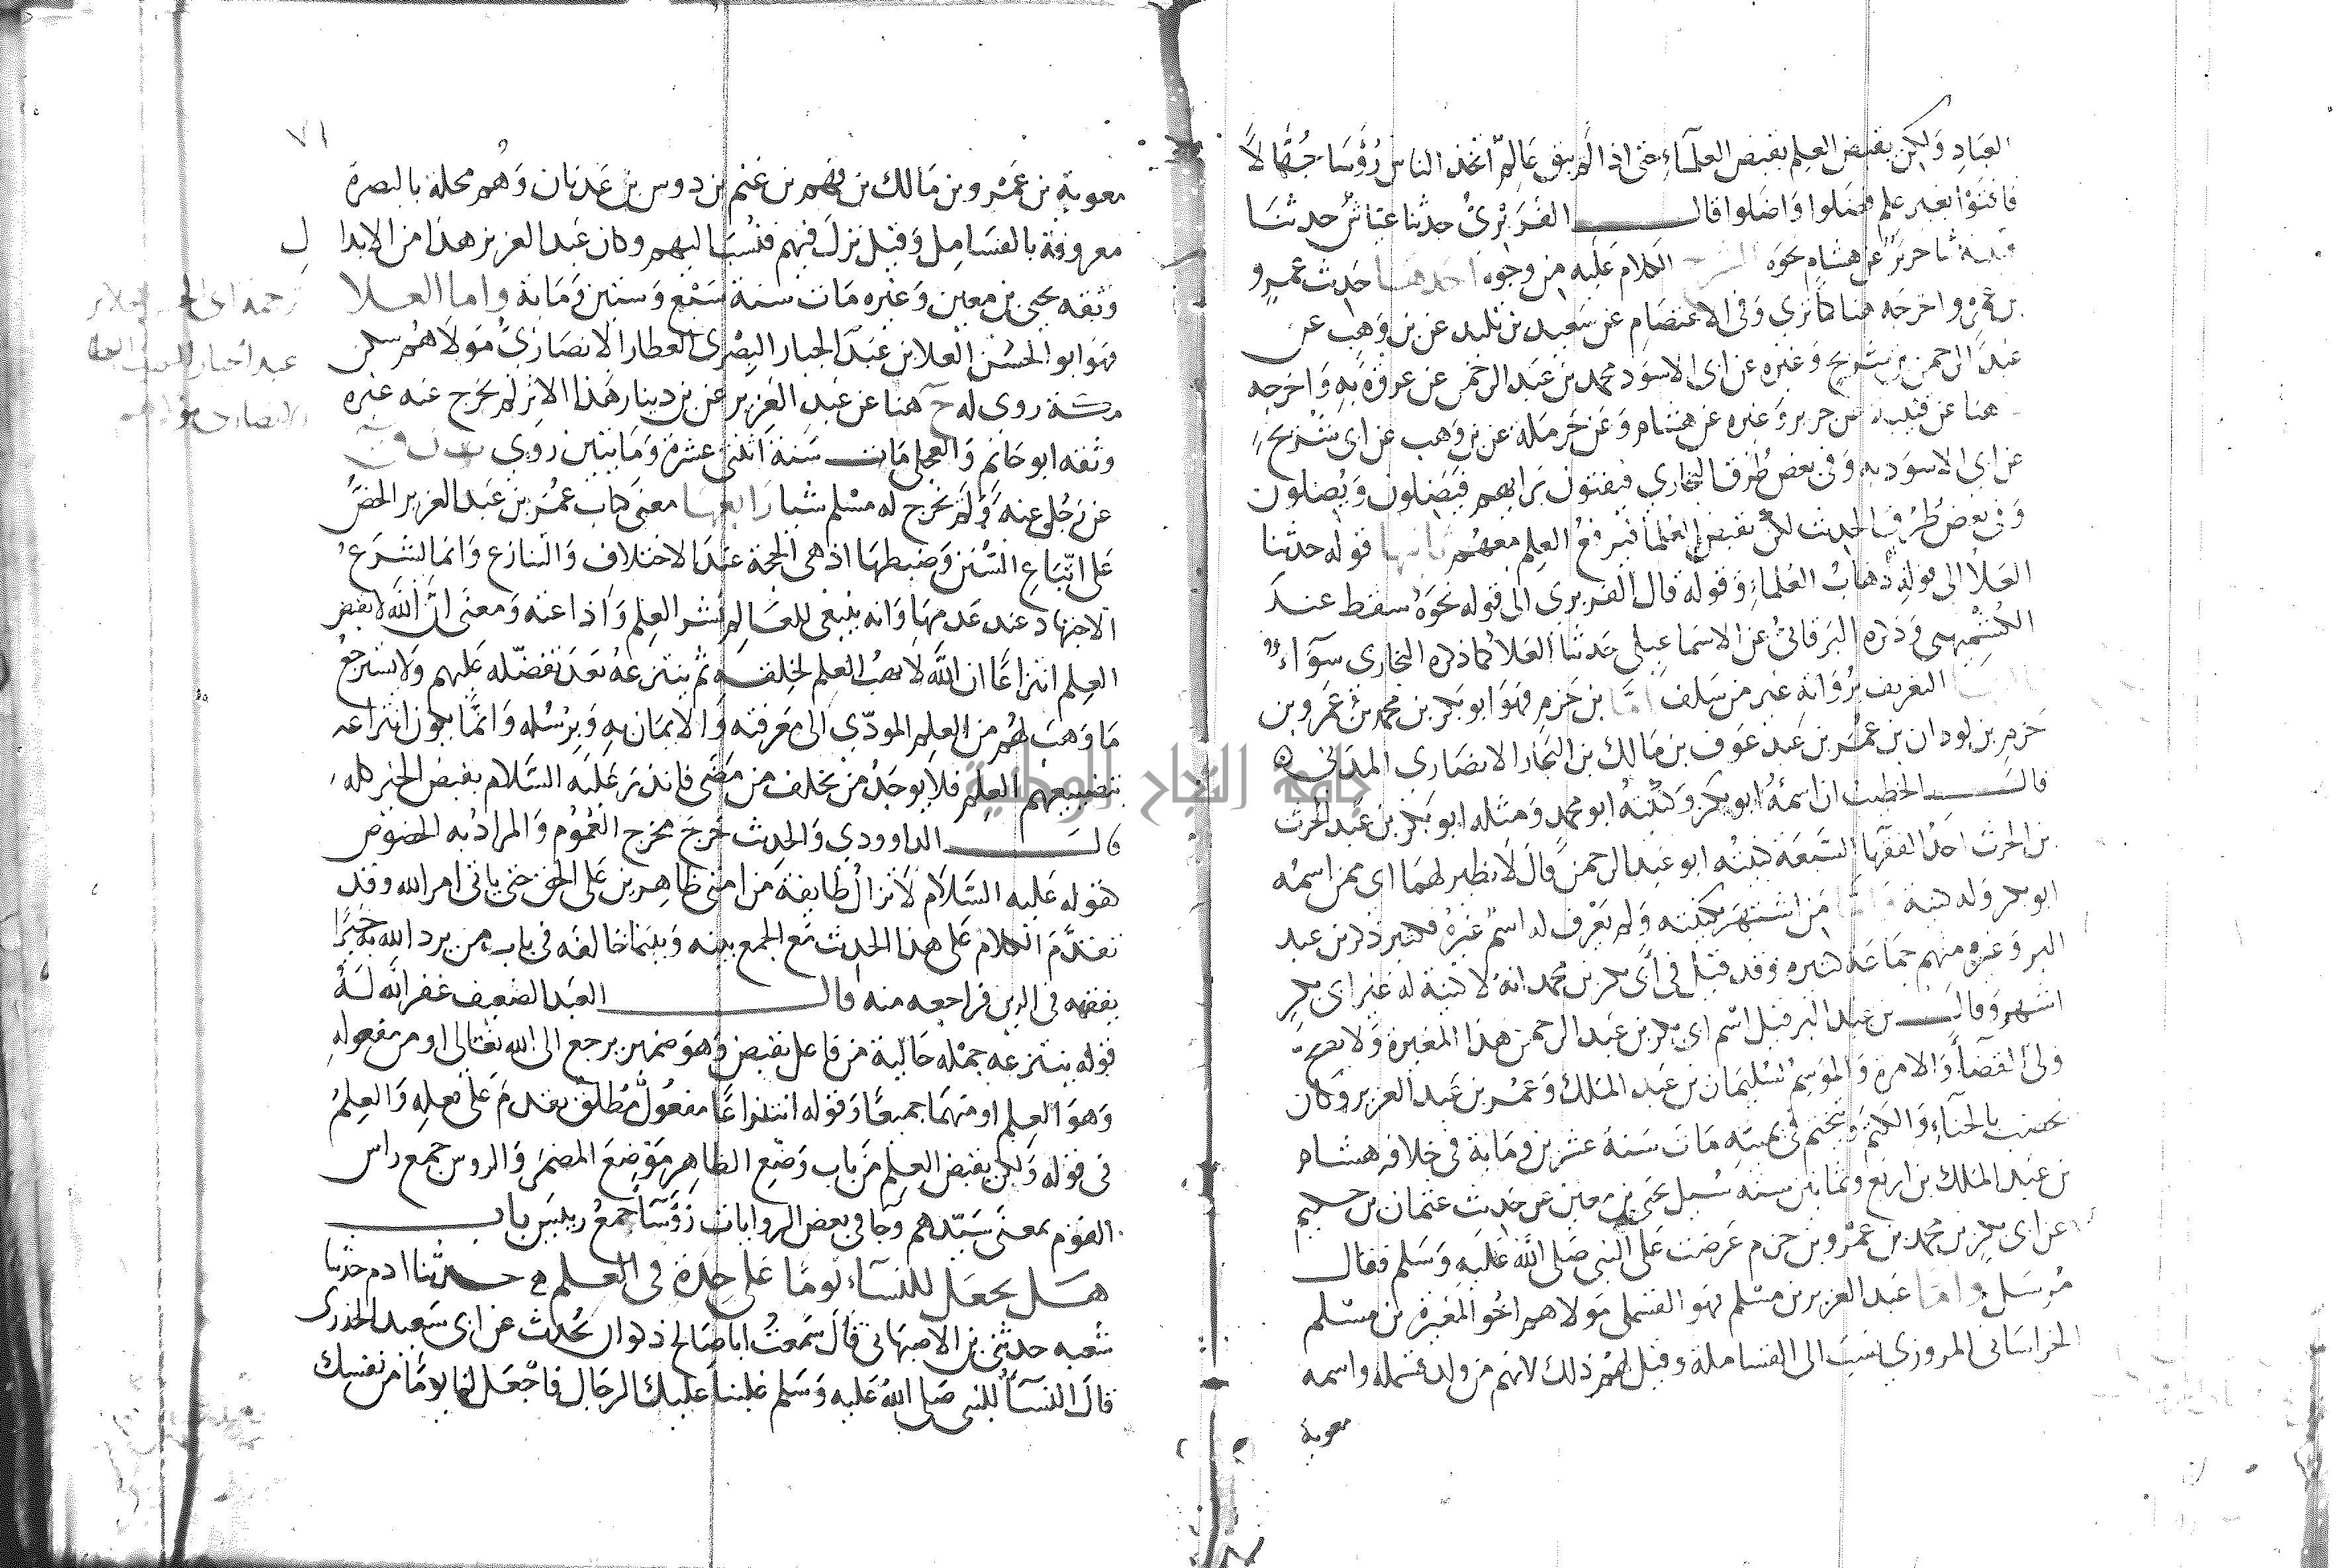 العباد ولكن يقبض العلم بقبض العلماء حتى اذا لم يبق عالم اتخذ الناس رؤسا جهالا
فافتوا بغير علم فضلوا واضلوا قال الفربري حدثنا عباس حدثنا
قتيبة ثنا جرير عن هشام نحوه الشرح الكلام عليه من وجوه احدها حديث عمرو
هنا كما تري وفي الاعتصام عن سعيد بن تليد عن بن وهب عن
عبد الرحمن بن شريح وغيره عن ابي الاسود محمد بن عبد الرحمن عن عروة به واخرجه
هنا عن قتيبة عن جرير وغيره عن هشام وعن حرملة عن بن وهب عن ابي شريح
عن ابي الاسود به وفي بعض طرق البخاري فيفتون برايهم فيضلون ويضلون
وفي بعض طرق الحديث لكن يقبض العلما فيرفع العلم معهم ثانيها قوله حدثنا
العلا الى قوله ذهاب العلماء وقوله قال الفربري الى قوله نحوه سقط عند
الكشميهني وذكره البرقاني عن الاسماعيلي حدثنا العلا كما ذكره البخاري سوآء
التعريف برواته غير من سلف اما بن حزم فهو ابو بكر بن محمد بن عمرو بن
حزم بن لودان بن عمرو بن عبد عوف بن مالك بن النجار الانصاري المدني
قال الخطيب ان اسمه ابو بكر وكنيته ابو محمد ومثله ابو بكر بن عبد الرحمن
بن الحرث احد الفقها السبعة كنيته ابو عبد الرحمن قال لا نظير لهما اي ممن اسمه
ابو بكر وله كنية واما من اشتهر بكنيته ولم يعرف له اسم غيره فكثير ذكر بن عبد
البر وغيره منهم جماعة كثيرة وقد قيل في ابي بكر بن محمد انه لا كنية له غير ابي بكر
انتهى وقال بن عبد البر قيل اسم ابي بكر بن عبد الرحمن هذا المغيرة ولا يصح
ولي القضآ والامرة والموسم لسليمان بن عبد الملك وعمر بن عبد العزيز وكان
يخضب بالحناء والكتم ويتختم في يمينه مات سنة عشرين ومائة في خلافة هشام
بن عبد الملك بن اربع وثمانين سنة سيل يحيى بن معين عن حديث عثمان بن حكيم
عن ابي بكر بن محمد بن عمرو بن حزم عرضت على النبي صلى الله عليه وسلم فقال
مرسل واما عبد العزيز بن مسلم فهو القسملي مولاهم اخو المغيرة بن مسلم
الخراساني المروزي نسب الى القساملة وقيل لهم ذلك لانهم من ولد قسملة واسمه
معوية
٧١
معوية بن عمرو بن مالك بن فهم بن غنم بن دوس بن عدنان وهم محلة بالبصرة
معروفة بالقسامل وقيل نزل فيهم فنسب اليهم وكان عبد العزيز هذا من الابدال
وثقه يحيى بن معين وغيره مات سنة سبع وستين ومائة واما العلا
فهو ابو الحسن العلا بن عبد الجبار البصري العطار الانصاري مولاهم سكن
مكة روى له خ هنا عن عبد العزيز عن بن دينار هذا الاثر لم يخرج عنه غيره
وثقه ابو حاتم والعجلي مات سنة اثنتي عشرة ومائتين روي ت س ق
عن رجل عنه ولم يخرج له مسلم شيا رابعها معنى كتاب عمر بن عبد العزيز الحض
على اتباع السنن وضبطها اذ هي الحجة عند الاختلاف والتنازع وانما لشرع
الاجتهاد عند عدمها وانه ينبغي للعالم نشر العلم واذاعته ومعنى ان الله لا يقبض
العلم انتزاعا ان الله لا يهب العلم لخلقه ثم ينتزعه بعد تفضله عليهم ولا يسترجع
ما وهب لهم من العلم المودي الى معرفته والايمان به وبرسله وانما يكون انتزاعه
بتضييعهم العلم فلا يوجد من يخلف من مضى فانذر عليه السلام بقبض الخير كله
قال الداوودي والحديث خرج مخرج العموم والمراد به الخصوص
كقوله عليه السلام لا تزال طايفة من امتي ظاهرين على الحق حتى ياتي امر الله وقد
تقدم الكلام على هذا الحديث مع الجمع بينه وبينما خالفه في باب من يرد الله به خيرا
يفقهه في الدين فراجعه منه قال العبد الضعيف غفر الله له
قوله ينتزعه جملة حالية من فاعل يقبض وهو ضمير يرجع الى الله تعالى او من مفعوله
وهو العلم او منهما جميعا وقوله انتزاعا مفعول مطلق تقدم على فعله والعلم
في قوله ولكن يقبض العلم من باب وضع الظاهر موضع المضمر والروس جمع راس
القوم بمعنى سيدهم وجا في بعض الروايات رؤسآ جمع رييس باب
هل يجعل للنسآء يوما على حدة في العلم حدثنا ادم حدثنا
شعبه حدثني بن الاصبهاني قال سمعت ابا صالح ذكوان يحدث عن ابي سعيد الخدري
قال النسآ للنبي صلى الله عليه وسلم غلبنا عليك الرجال فاجعل لنا يوما من نفسك
جامعة النجاح الوطنية